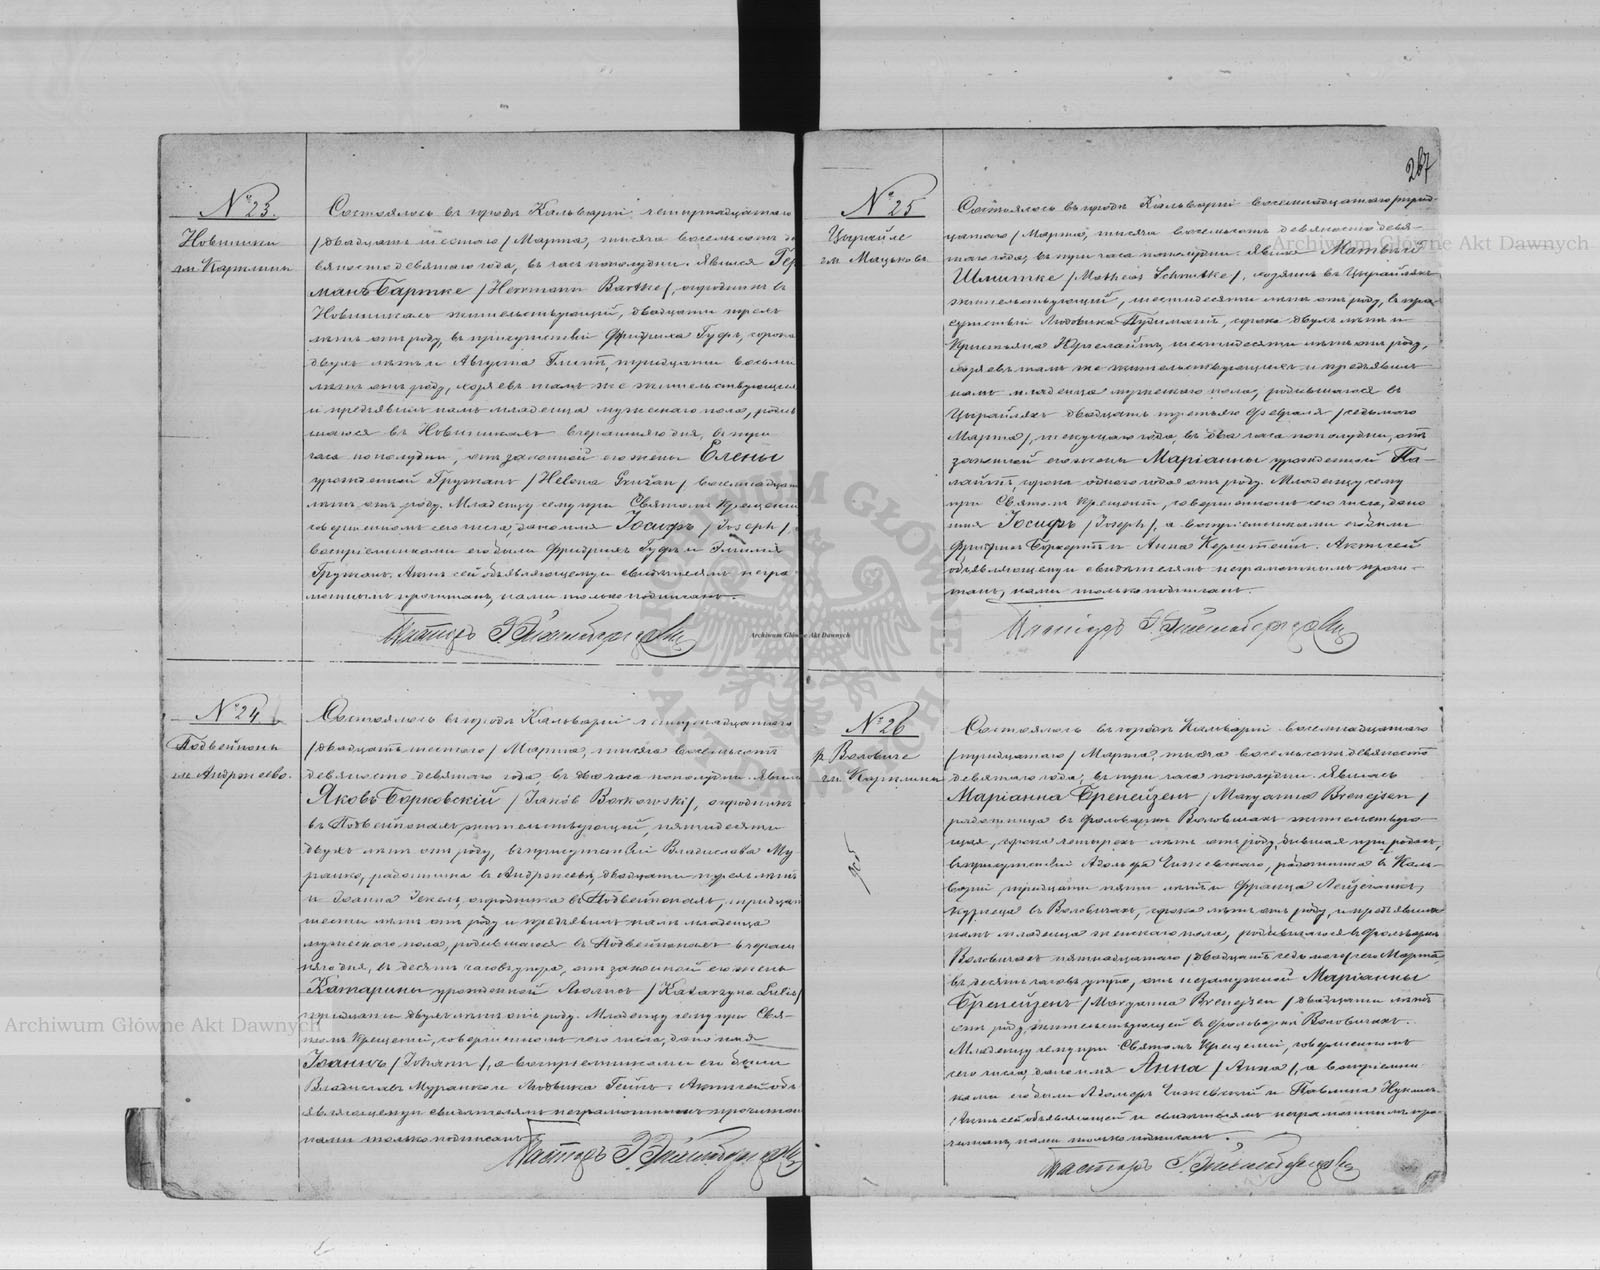 № 23.
Новиники
гм. Карклины
Состоялось въ городѣ Кальваріи четырнадцатаго
/двадцать шестого/ Марта, тысяча восемьсотъ де
вяносто девятаго года, въ часъ пополудни. Явился Гер
манъ Бартке /Herrmann Bartke/, огородникъ въ
Новиникахъ жительствующій, двадцати трехъ
лѣтъ отъ роду, въ присутствіи Фридриха Гуфъ, сорока
двухъ лѣтъ и Августа тридцати восьми
лѣтъ отъ роду, хозяевъ тамъ же жительствующихъ
и предъявилъ намъ младенца мужескаго пола, родив
шагося въ Новиникахъ вчерашняго дня, въ три
часа пополудни, отъ законной его жены Елены
урожденной Гружанъ /Helena Gružan/ восемнадцати
лѣтъ отъ роду. Младенцу сему при Святомъ Крещеніи
совершенномъ сего числа, дано имя Іосифъ /Joseph/,
воспріемниками его были Фридрихъ Гуфъ и Эмилія
Гружанъ. Актъ сей объявляющему и свидѣтелямъ негра
мотнымъ прочитанъ, нами только подписанъ.
Пасторъ
№ 24
Подвейпоны
гм. Андржеево.
Состоялось въ городѣ Кальваріи четырнадцатаго
/двадцать шестого/ Марта, тысяча восемьсотъ
девяносто девятаго года, въ два часа пополудни. Явился
Яковъ Борковскій /Jakób Borkowski/, огородникъ
въ жительствующій, пятидесяти
двухъ лѣтъ отъ роду, въ присутствіи Владислава Му
рашко, работника въ Андржеевѣ, двадцати трехъ лѣтъ
и Іоанна огородника въ тридцати
шести лѣтъ отъ роду и предъявилъ намъ младенца
мужескаго пола, родившагося въ вчераш
няго дня, въ десять часовъ утра, отъ законной его жены
Катарины урожденной Люлисъ /Katarzyna Lulis/
тридцати двухъ лѣтъ отъ роду. Младенцу сему при Свя-
томъ Крещеніи, совершенномъ сего числа, дано имя
Іоаннъ /Johann/, а воспріемниками его были
Владиславъ Мурашко и Людвика Актъ сей объ
являющему и свидѣтелямъ неграмотнымъ прочитанъ
нами только подписанъ
Пасторъ
267
№ 25
Цырайле
гм.
Состоялось въ городѣ Кальваріи восемнадцатаго /трид-
цатаго/ Марта, тысяча восемьсотъ девяносто девя-
таго года, въ три часа пополудни. Явился Матвѣй
Шмитке /Matheas Schmitke/, хозяинъ въ Цырайляхъ
жительствующій, шестидесяти лѣтъ отъ роду, въ при-
сутствіи Людовика сорока двухъ лѣтъ и
Кристьяна шестидесяти лѣтъ отъ роду,
хозяевъ тамъ же жительствующихъ и предъявилъ
намъ младенца мужескаго пола, родившагося въ
Цырайляхъ двадцать третьяго Февраля /седьмого
Марта/, текущаго года, въ два часа пополудни, отъ
законной его жены Маріанны урожденной Па-
сорока одного года отъ роду. Младенцу сему
при Святомъ Крещеніи, совершенномъ сего числа, дано
имя Іосифъ /Joseph/, а воспріемниками его были
Фридрихъ и Анна Актъ сей
объявляющему и свидѣтелямъ неграмотнымъ прочи-
танъ, нами только подписанъ.
Пасторъ
№ 26
ф. Воловиче
гм. Карклины
Состоялось въ городѣ Кальваріи восемнадцатаго
/тридцатаго/ Марта, тысяча восемьсотъ девяносто
девятаго года, въ три часа пополудни. Явилась
Маріанна Бренейзенъ /Maryanna Brenejsen/
работница въ фольваркѣ Воловичахъ жительствую-
щая, сорока четырехъ лѣтъ отъ роду, бывшая при родахъ,
въ присутствіи Адольфа Чижевскаго, работника въ Каль
варіи, тридцати пяти лѣтъ и Франца
кузнеца въ Воловичахъ, сорока лѣтъ отъ роду, и предъявила
намъ младенца женскаго пола, родившагося въ фольваркѣ
Воловичахъ пятнадцатаго /двадцать седьмого/ сего Марта,
въ десять часовъ утра, отъ незамужней Маріанны
Бренейзенъ /Maryanna Brenejzen/ двадцати лѣтъ
отъ роду, жительствующей въ фольваркѣ Воловичахъ.
Младенцу сему при Святомъ Крещеніи, совершенномъ
сего числа, дано имя Анна /Anna/, а воспріемни
ками его были Адольфъ Чижевскій и Павлина
Актъ сей объявляющей и свидѣтелямъ неграмотнымъ про-
читанъ, нами только подписанъ.
Пасторъ
Archiwum Główne Akt Dawnych
Archiwum Główne Akt Dawnych
Archiwum Główne Akt Dawnych
ARCHIWUM GŁÓWNE AKT DAWNYCH